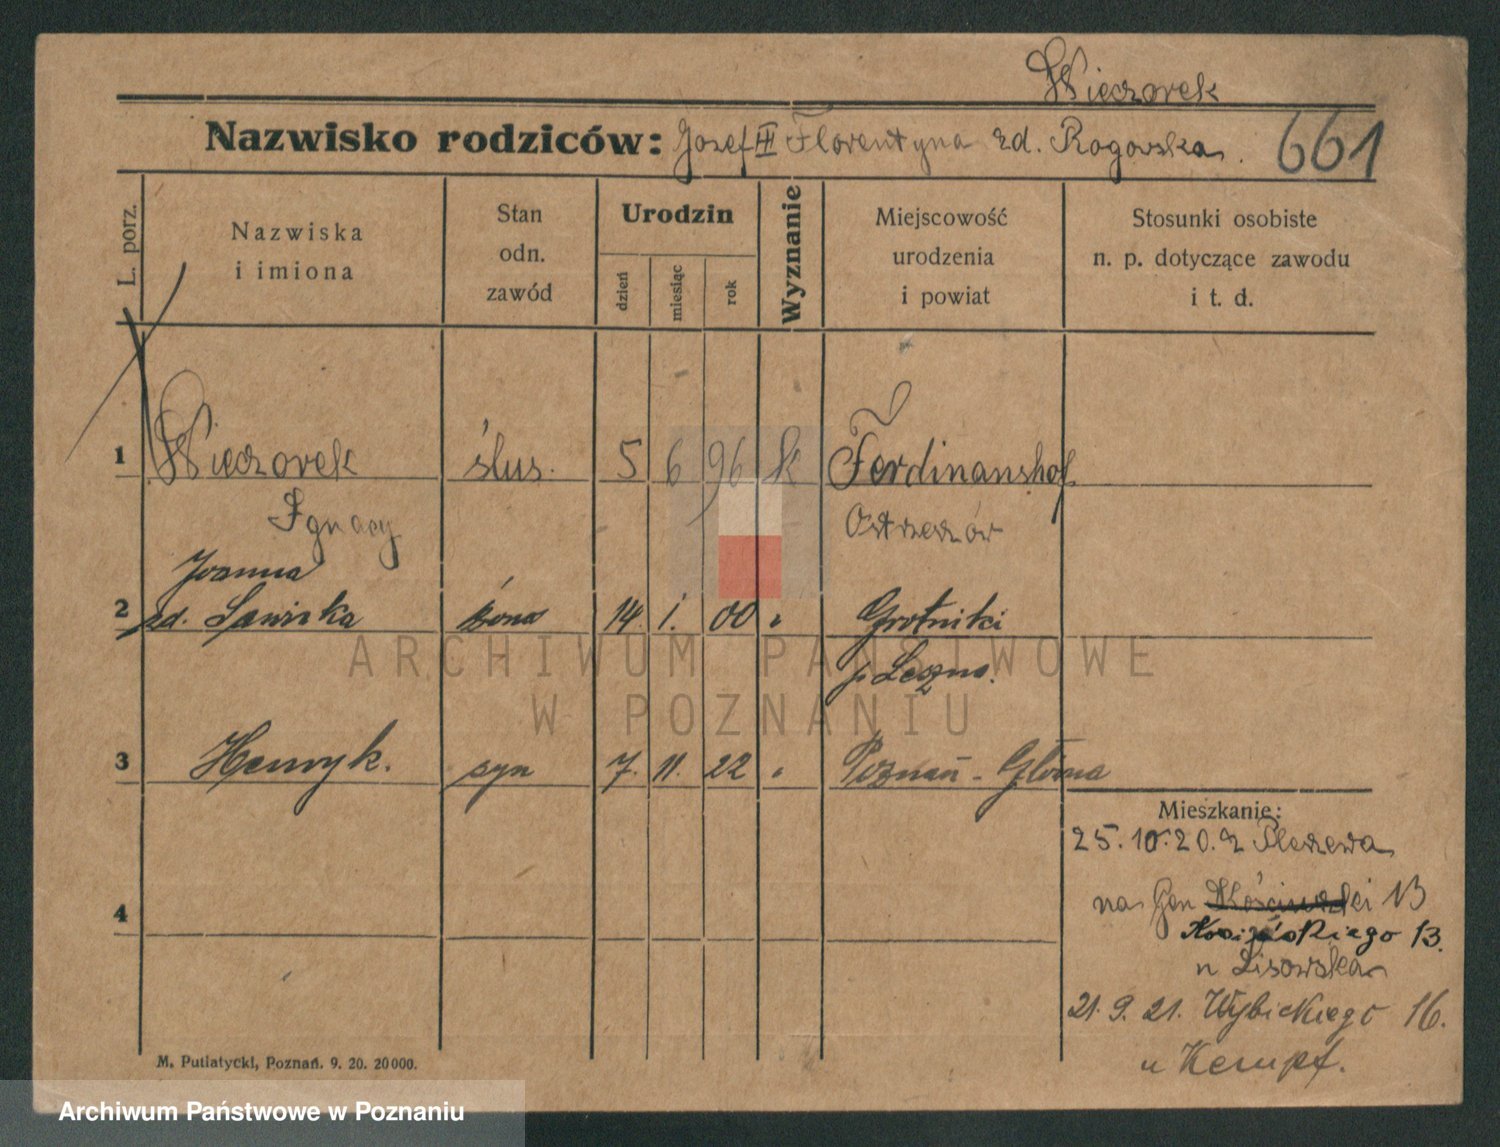 Wieczorek
Nazwisko rodziców: Jozef III Florentyna zd. Rogowska. 661
L. porz.
Nazwiska
i imiona
Stan
odn.
zawód
Urodzin
dzień
miesiąc
rok
Wyznanie
Miejscowość
urodzenia
i powiat
Stosunki osobiste
n. p. dotyczące zawodu
i t. d.
1 Wieczorek ślus. 5 6 96 k Ferdinanshof
Ignacy Ostrzeszów
Joanna
2 zd. żona 14. 1. 00 " Grotniki
p. Leszno.
3 Henryk. syn 7. 11. 22 " Poznań - Główna
Mieszkanie:
25.10.20. z Pleszewa
na Gen 13
Kosińskiego 13.
u Lisowska
4
21. 9. 21. Wybickiego 16.
u Kempf.
M. Putiatycki, Poznań. 9. 20. 20000.
ARCHIWUM PAŃSTWOWE
W POZNANIU
Archiwum Państwowe w Poznaniu